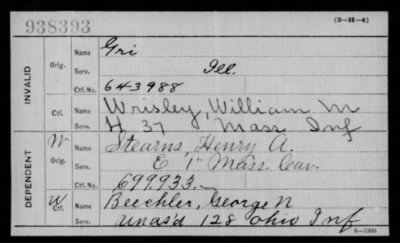 938393
(3-H-4)
INVALID
Orig.
Name
Gri
Serv.
Ill.
Ctf. No.
643988
Ctf.
Name
Wrisley, William M
Serv.
H 37 Mass Inf
DEPENDENT
W
Orig.
Name
Stearns, Henry A.
Serv.
E 1" Mass. Cav.
Ctf. No.
699.933.
W
Ctf.
Name
Beechler, George N
Serv.
Unas'd 128 Ohio Inf